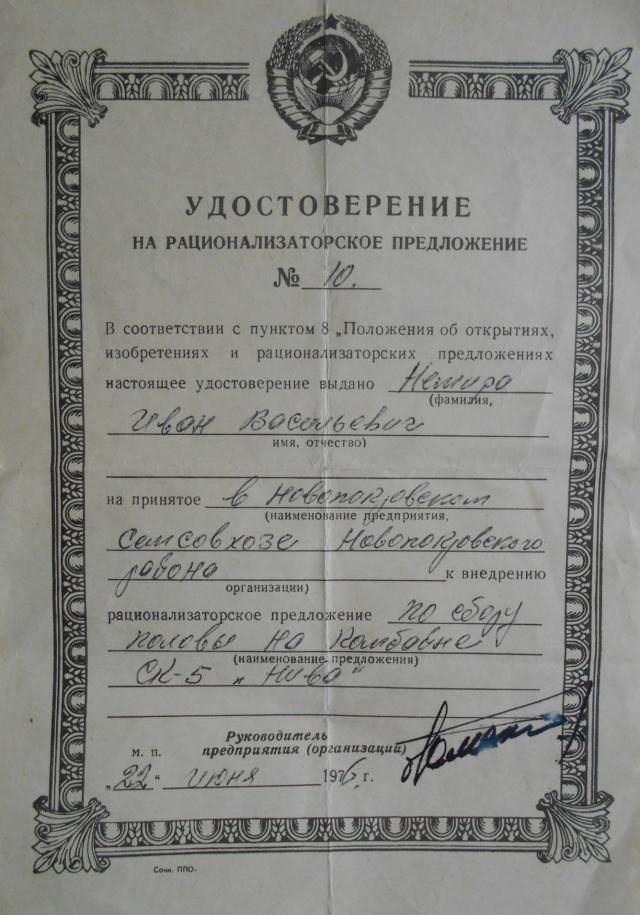 УДОСТОВЕРЕНИЕ
НА РАЦИОНАЛИЗАТОРСКОЕ ПРЕДЛОЖЕНИЕ
№ 10.
В соответствии с пунктом 8 „Положения об открытиях,
изобретениях и рационализаторских предложениях
настоящее удостоверение выдано Немира
(фамилия,
Иван Васильевич
имя, отчество)
на принятое в Новопокровском
(наименование предприятия,
Семсовхозе Новопокровского
района к внедрению
организации)
рационализаторское предложение по сбору
половы на комбайне
(наименование предложения)
СК-5 „Нива"
Руководитель
м. п. предприятия (организации)
„22" июня 1976 г.
Сочи. ППО.